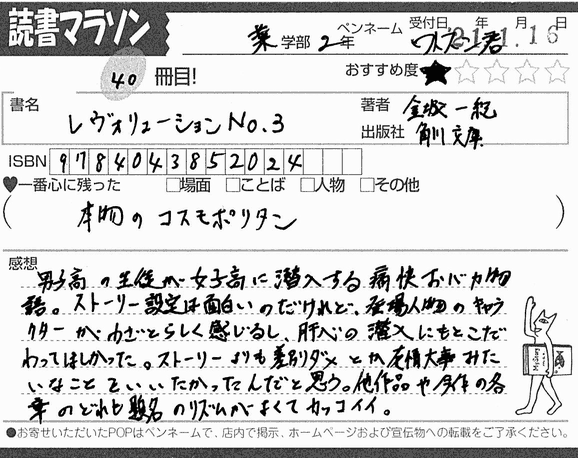 読書マラソン
薬 学部 2年 ペンネーム 受付日 年 月 日
21.1.16
40 冊目! おすすめ度 ★☆☆☆☆
書名 レヴォリューションNo.3 著者 金城一紀
出版社 角川文庫
ISBN 9784043852024
♥一番心に残った □場面 □ことば □人物 □その他
(本物のコスモポリタン)
感想
男子高の生徒が女子高に潜入する痛快おバカ物
語。ストーリー設定は面白いのだけれど、登場人物のキャラ
クターがわざとらしく感じるし、肝心の潜入にもとこだ
わってほしかった。ストーリーよりも差別ダメとか友情大事みた
いなことをいいたかったんだと思う。他作品や今作の各
章のどれも題名のリズムがよくてカッコイイ。
●お寄せいただいたPOPはペンネームで、店内で掲示、ホームページおよび宣伝物への転載をご了承ください。